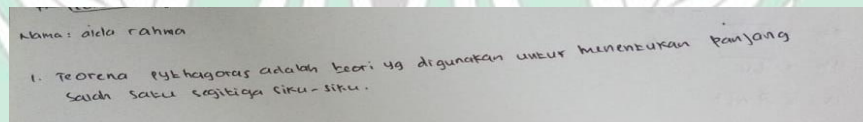 Nama: aida rahma
1. Teorena pythagoras adalah teori yg digunakan untuk menentukan panjang
salah satu segitiga siku-siku.